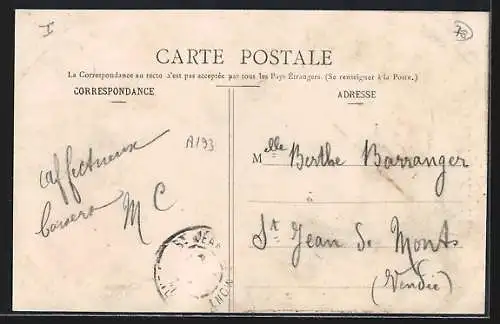 I
78
CARTE POSTALE
La Correspondance au recto n'est pas acceptée par tous les Pays Étrangers. (Se renseigner à la Poste.)
CORRESPONDANCE
ADRESSE
affectueux
baisers
M C
A193
Melle Berthe Barranger
à
St Jean de Monts
(Vendée)